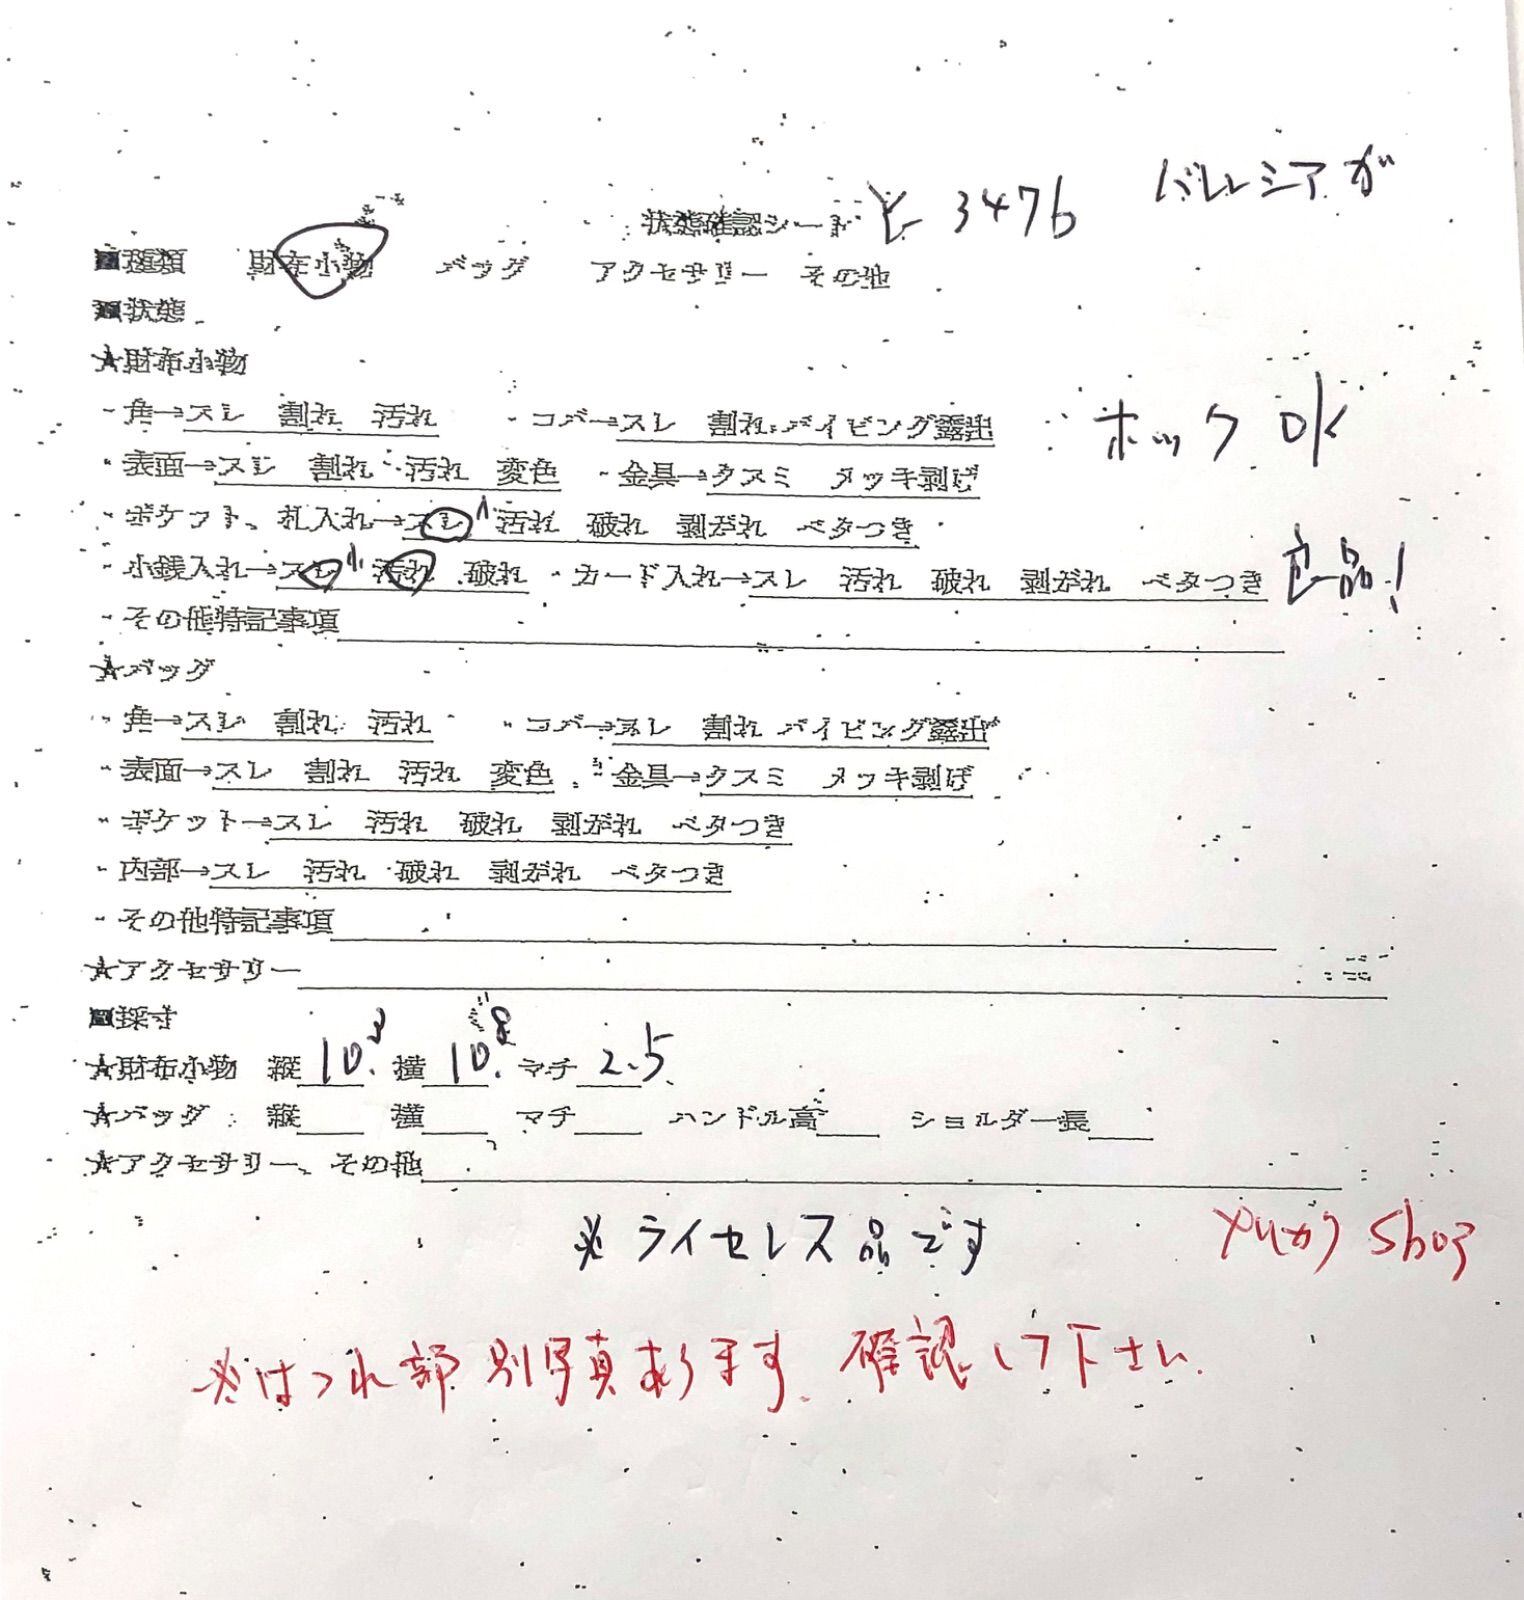 バレンシアガ
状態確認シート と 3476
■種類 財布小物 バッグ アクセサリー その他
■状態
★財布小物
・角→スレ 割れ 汚れ ・コバ→スレ 割れ パイピング露出 ホック OK
・表面→スレ 割れ 汚れ 変色 ・金具→クスミ メッキ剥げ
・ポケット、札入れ→スレ 小 汚れ 破れ 剥がれ ベタつき
・小銭入れ→スレ 小 汚れ 破れ ・カード入れ→スレ 汚れ 破れ 剥がれ ベタつき 良品!
・その他特記事項
★バッグ
・角→スレ 割れ 汚れ ・コバ→スレ 割れ パイピング露出
・表面→スレ 割れ 汚れ 変色 ・金具→クスミ メッキ剥げ
・ポケット→スレ 汚れ 破れ 剥がれ ベタつき
・内部→スレ 汚れ 破れ 剥がれ ベタつき
・その他特記事項
★アクセサリー
■採寸
★財布小物 縦 10.3 横 10.8 マチ 2.5
★バッグ 縦 横 マチ ハンドル高 ショルダー長
★アクセサリー、その他
※ ライセンス品です
メルカリ Shop
※ほつれ部 別写真あります、確認して下さい